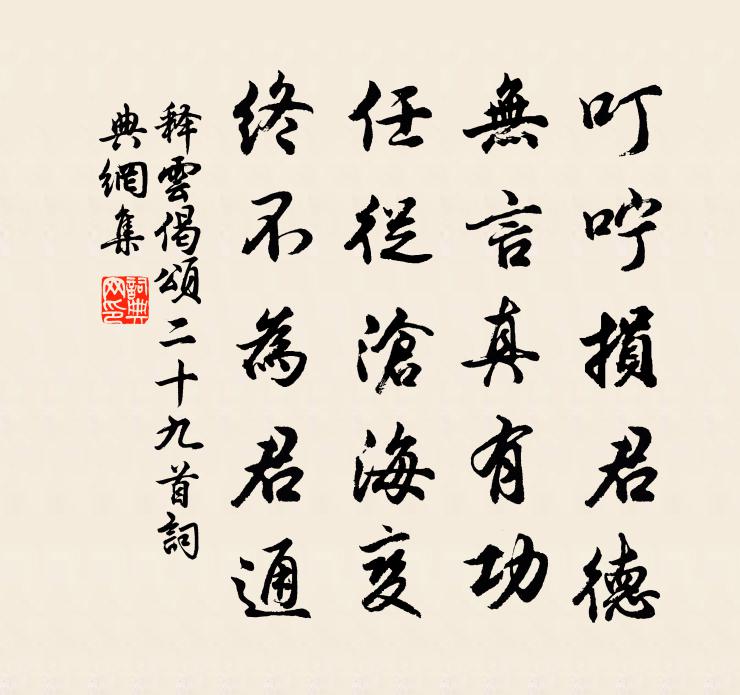 叮咛損君德
無言真有功
任從滄海変
終不為君通
释雲偈頌二十九首詞
典網集
詞典网印